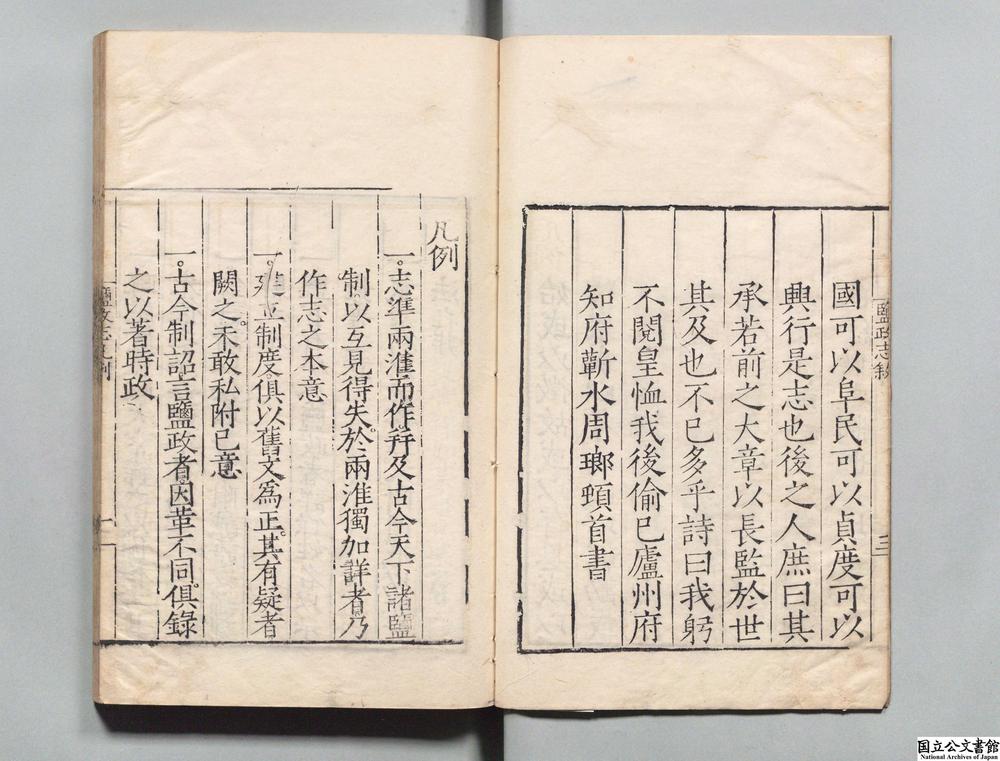 鹽政志敘
三
國可以阜民可以貞度可以
興行是志也後之人庶曰其
承若前之大章以長監於世
其及也不已多乎詩曰我躬
不閱皇恤我後偷已廬州府
知府蘄水周瑯頓首書
凡例
一。志準兩淮而作。并及古今天下諸鹽
制。以互見得失。於兩淮獨加詳者。乃
作志之本意
一。建立制度俱以舊文爲正。其有疑者
闕之。不敢私附己意
一。古今制詔言鹽政者。因革不同。俱錄
之以著時政
鹽政志凡例
一
国立公文書館
National Archives of Japan